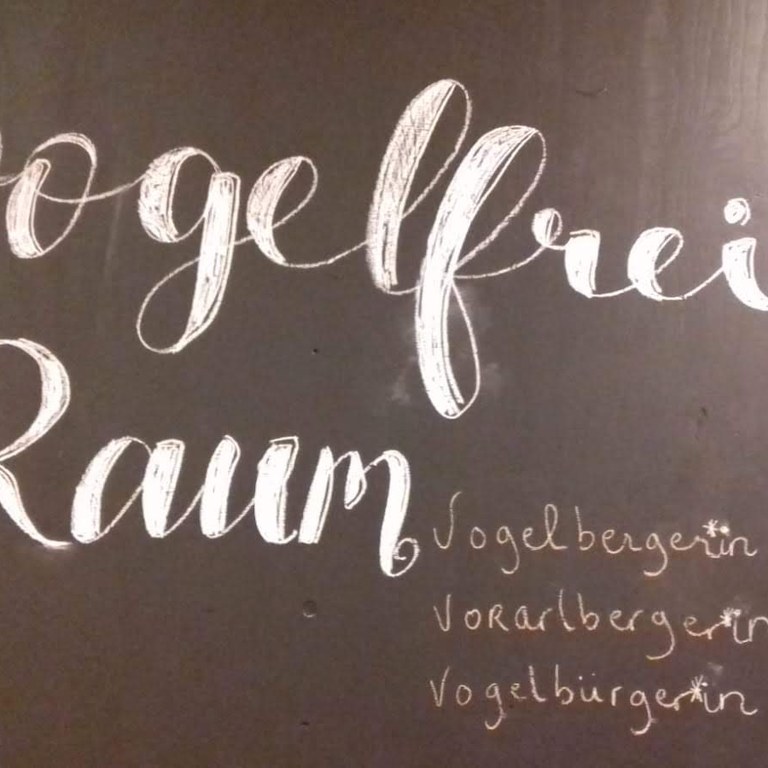 Vogelfrei
Raum
Vogelberger*in
VoRarlberger*in
Vogelbürger*in